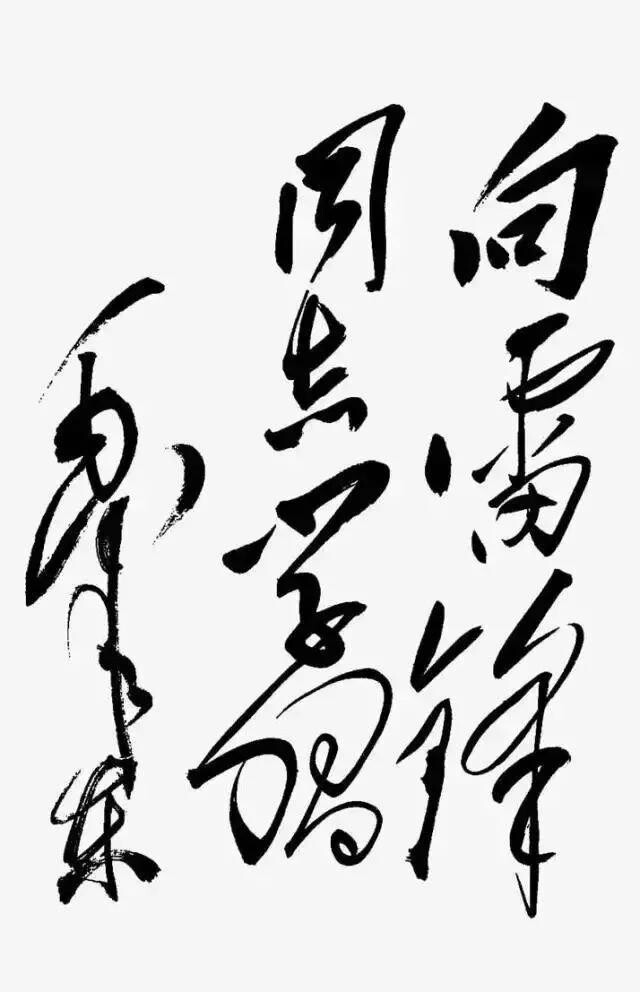 向雷锋
同志学習
毛泽东